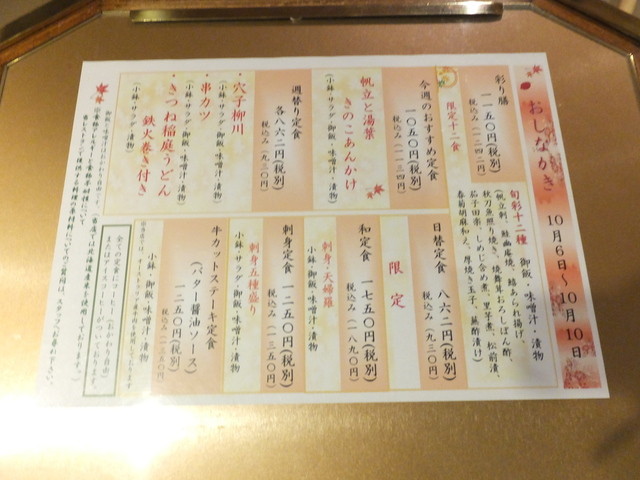 おしながき
10月6日～10月10日
彩り膳
一一五〇円(税別)
税込み(一二四二円)
限定十二食
旬彩十二種 御飯・味噌汁・漬物
今週のおすすめ定食
一〇五〇円(税別)
税込み(一一三四円)
帆立と湯葉
きのこあんかけ
(小鉢・サラダ・御飯・味噌汁・漬物)
週替り定食
各八六二円(税別)
税込み(九三〇円)
・穴子柳川
(小鉢・サラダ・御飯・味噌汁・漬物)
・串カツ
(小鉢・サラダ・御飯・味噌汁・漬物)
・きつね稲庭うどん
鉄火巻き付き
(小鉢・サラダ・漬物)
日替定食 八六二円(税別)
税込み(九三〇円)
限定
和定食
一七五〇円(税別)
税込み(一八九〇円)
刺身・天婦羅
小鉢・御飯・味噌汁・漬物
刺身定食
一二五〇円(税別)
税込み(一三五〇円)
刺身五種盛り
小鉢・サラダ・御飯・味噌汁・漬物
牛カットステーキ定食
(バター醤油ソース)
一二五〇円(税別)
税込み(一三五〇円)
小鉢・御飯・味噌汁・漬物
全ての定食にコーヒー(おかわり自由)
またはアイスコーヒーがついております。